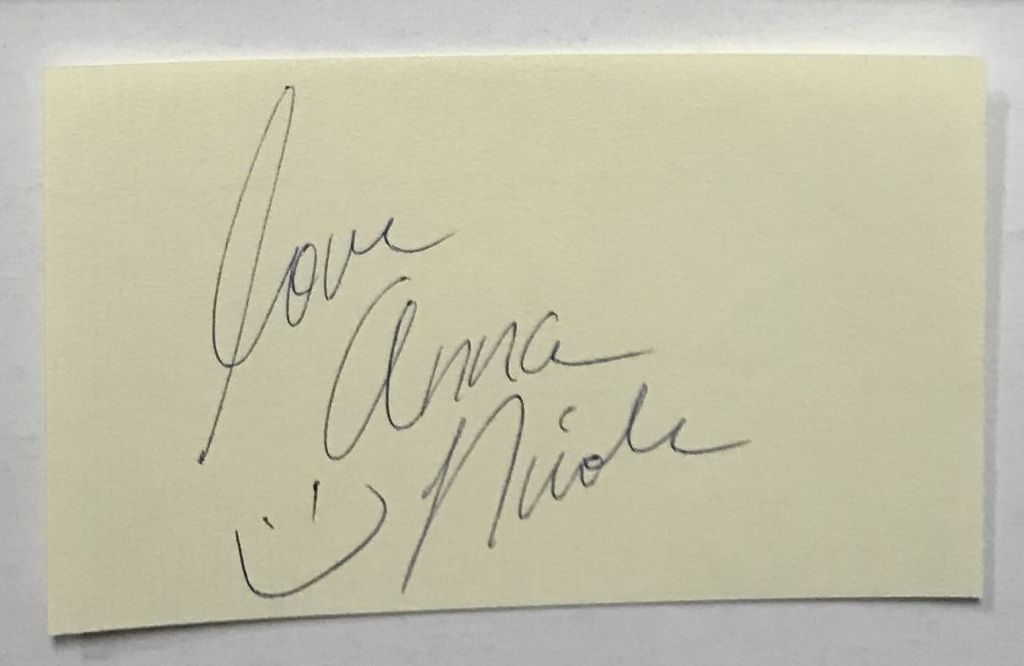 Love
Anna
Nicole